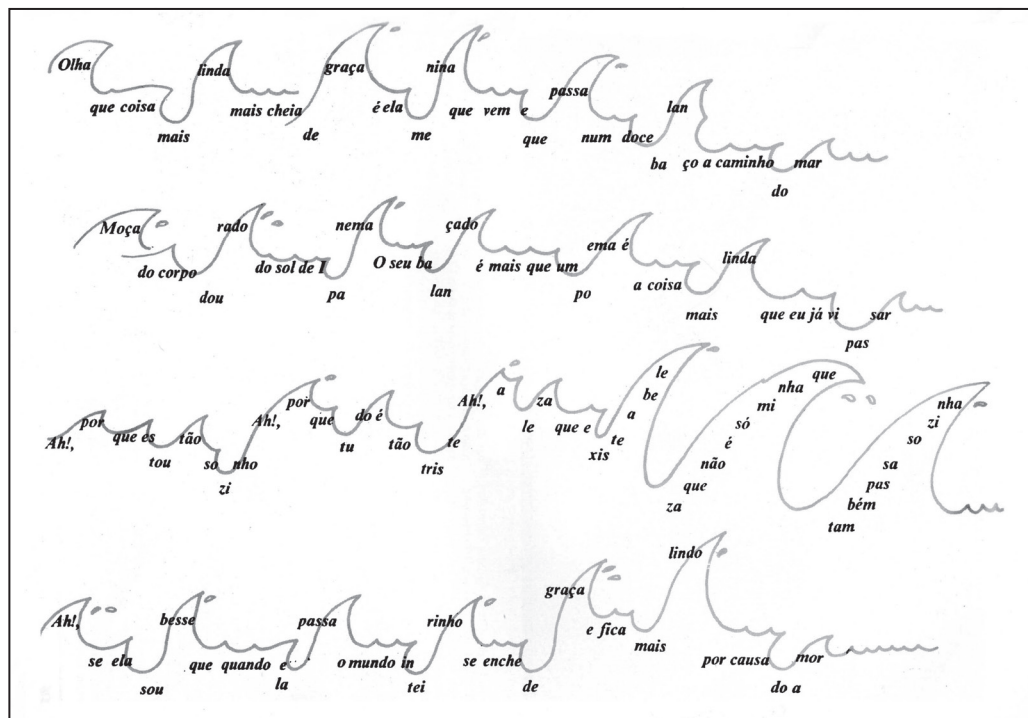 Olha que coisa mais linda mais cheia de graça é ela me nina que vem e que passa num doce ba lan ço a caminho do mar
Moça do corpo dou rado do sol de I pa nema O seu ba lan çado é mais que um po ema é a coisa mais linda que eu já vi pas sar
Ah!, por que es tou tão so zi nho Ah!, por que tu do é tão tris te Ah!, a be le za que e xis te a be le za que não é só mi nha que tam bém pas sa so zi nha
Ah!, se ela sou besse que quando e la passa o mundo in tei rinho se enche de graça e fica mais lindo por causa do a mor